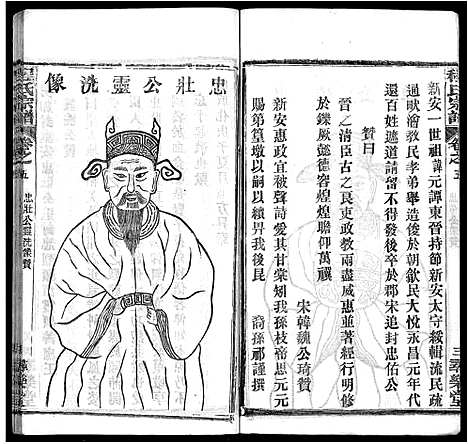 程氏宗譜
卷之五
三
新安一世祖諱元譚東晉持節新安太守綏輯流民疏
過眂澮教民孝弟舉造後於朝歙民大悅永昌元年代
還百姓遮道請留不得發後卒於郡宋追封忠佑公
贊曰
晉之清臣古之良吏政教兩盡威惠並著經行明修
於鑠厥懿德容煌煌瞻仰萬禩
宋韓魏公琦贊
新安惠政宜被聲詩愛其甘棠矧我孫枝帝思元元
賜第篁墩以嗣以續畀我後昆
裔孫祁謹撰
忠壯公靈洗像
程氏宗譜
卷之五
忠壯公靈洗像贊